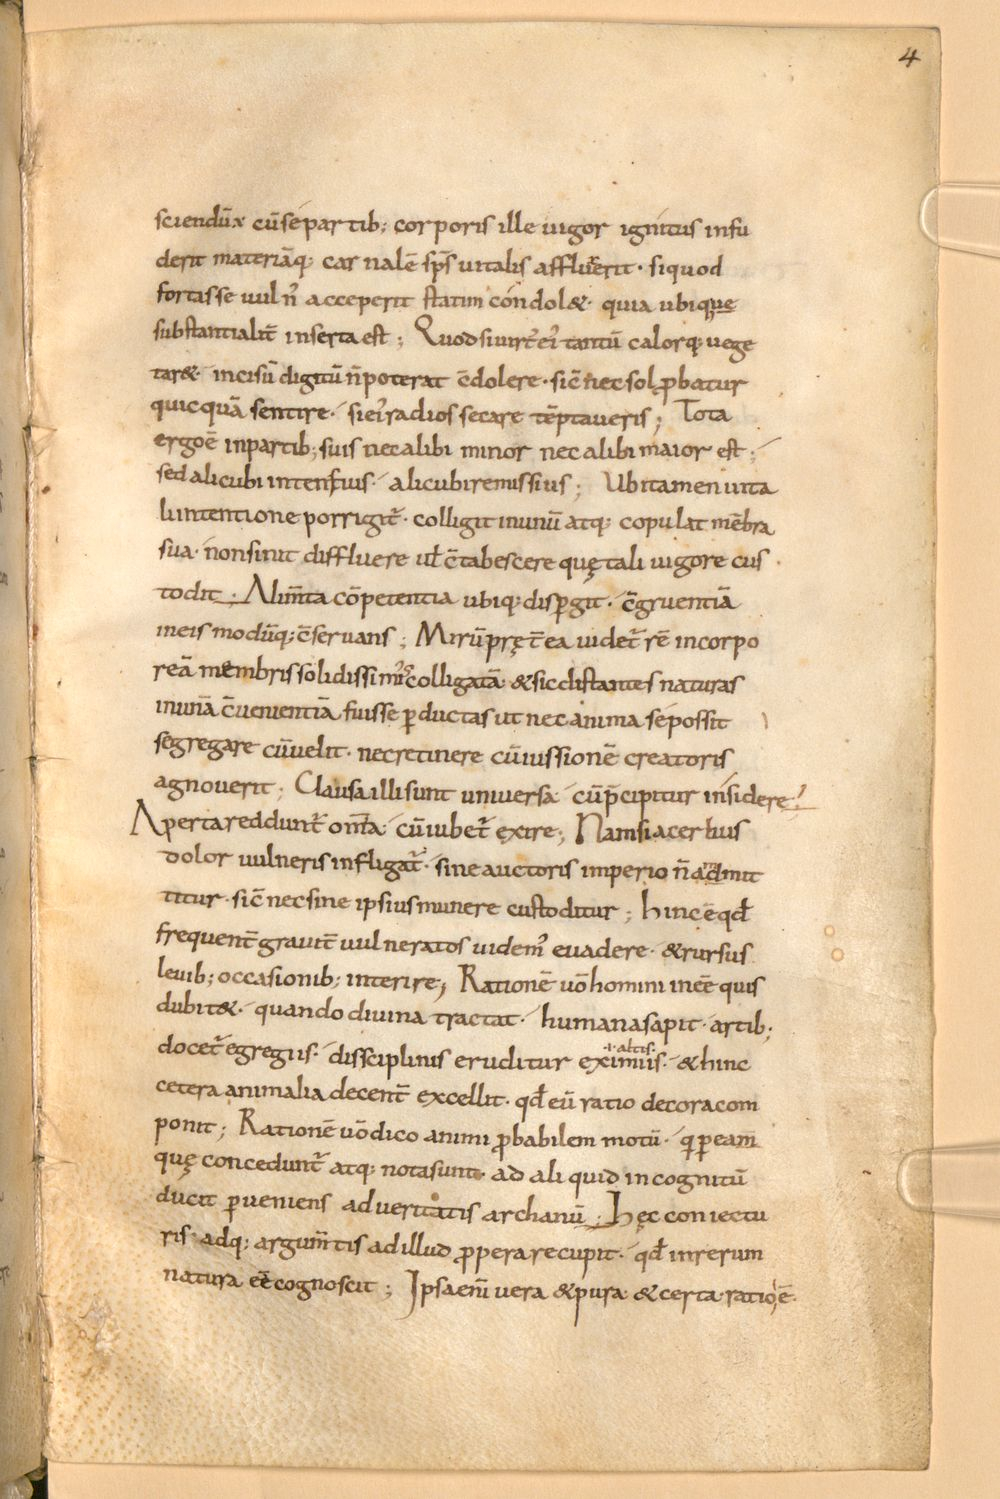 4
sciendū· cū sé partib; corporis ille uigor ignitus infu
derit materiāq; carnalē sp̄s uitalis affluxerit· siquod
fortasse uuln̄ acceperit statim condol&· quia ubique
substantialit̄ inserta est; Quod si uir& ei tantū calorq; uege
tar&· incisū digitū n̄ poterat c̄dolere· sic̄ nec sol ꝓbatur
quicquā sentire· si ei radios secare tēptaueris; Tota
ergo ē in partib; suis nec alibi minor nec alibi maior est;
sed alicubi intensius· alicubi remissius; Ubi tamen uita
li intentione porrigit̄· colligit in unū atq; copulat mēbra
sua· non sinit diffluere ul̄ c̄tabescere quę tali uigore cus
todit; Alim̄ta cōpetentia ubiq; disꝑgit· c̄gruentiā
in eis modūq; c̄seruans; Mirū pręt̄ea uidet̄ rē incorpo
reā membris solidissimis colligatā· & sic distantes naturas
in unā c̄uenientiā fuisse ꝑductas ut nec anima se possit
segregare cū uelit· nec retinere cū iussionē creatoris
agnouerit; Clausa illi sunt uniuersa cū p̄cipitur insidere·
Aperta reddunt̄ om̄ia cū iubet̄ exire; Nam si acerbus
dolor uulneris infligat̄· sine auctoris imperio n̄ admit
titur· sic̄ nec sine ipsius munere custoditur; hinc ē qd̄
frequent̄ grauit̄ uulneratos uidem̄ euadere· & rursus
leuib; occasionib; interire; Rationē uō homini inēē quis
dubit&· quando diuina tractat· humana sapit· artib;
docet̄ egregiis· dissciplinis eruditur eximiis· & hinc
·i·altis·
cetera animalia decent̄ excellit· qd̄ eū ratio decora com
ponit; Rationē uō dico animi ꝓbabilem motū· q ꝑ eam
quę concedunt̄ atq; nota sunt· ad aliquid incognitū
ducit ꝑueniens ad ueritatis archanū; Hęc coniectu
ris· adq; argum̄tis ad illud ꝓperare cupit· qd̄ in rerum
natura ēē cognoscit; Ipsa enī uera & pura & certa ratio ē·